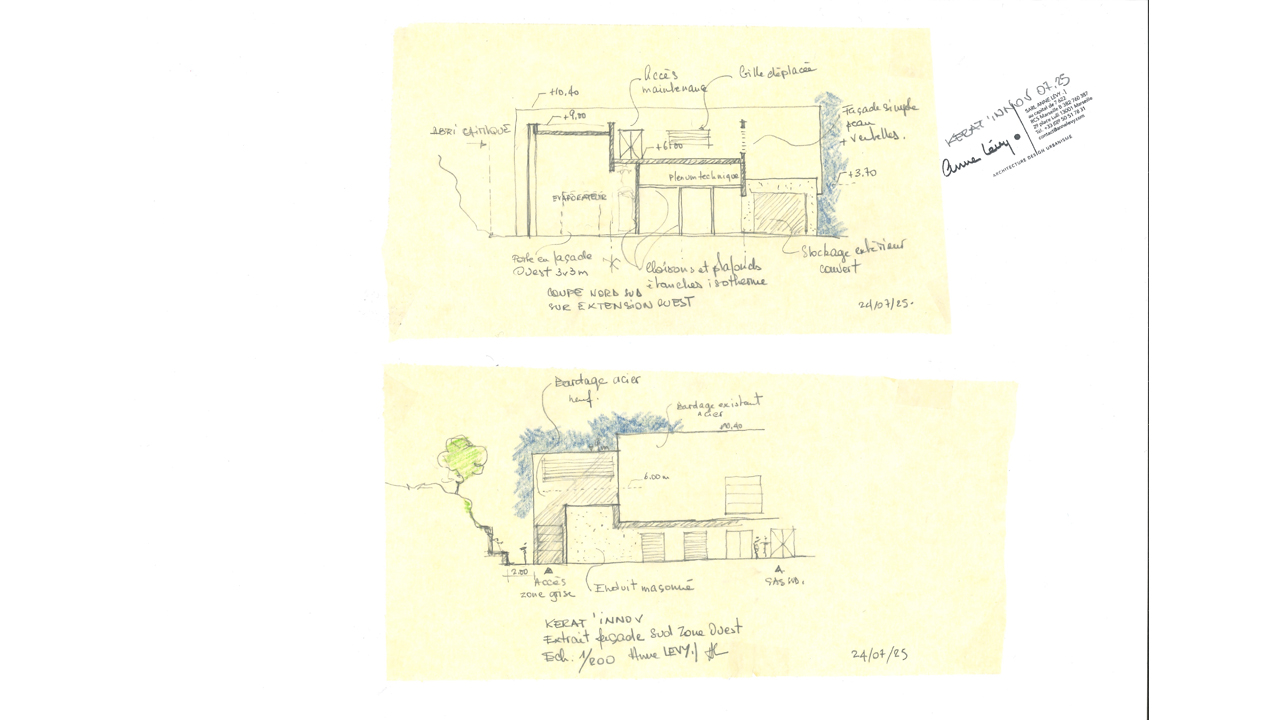 Accès
maintenance
Grille déplacée
+10.40
+9.00
ABRI
+6.00
Façade simple
peau
+ ventelles.
Plenum technique
+3.70
EVAPORATEUR
Porte en façade
Ouest 3x3m
Cloisons et plafonds
étanches isotherme
Stockage extérieur
couvert
COUPE NORD SUD
SUR EXTENSION OUEST
24/07/25.
KERAT'INNOV 07.25
SARL ANNE LEVY. I
au capital de 7 622
RCS Marseille B 382 760 387
27 place Lulli 13001 Marseille
Anne Lévy
ARCHITECTURE DESIGN URBANISME
Bardage acier
neuf.
Bardage existant
acier
10.40
6.00m
2.00
Accès
zone grise
Enduit maçonné
SAS SUD.
KERAT'INNOV
Extrait façade Sud Zone Ouest
Ech. 1/200 Anne LEVY
24/07/25